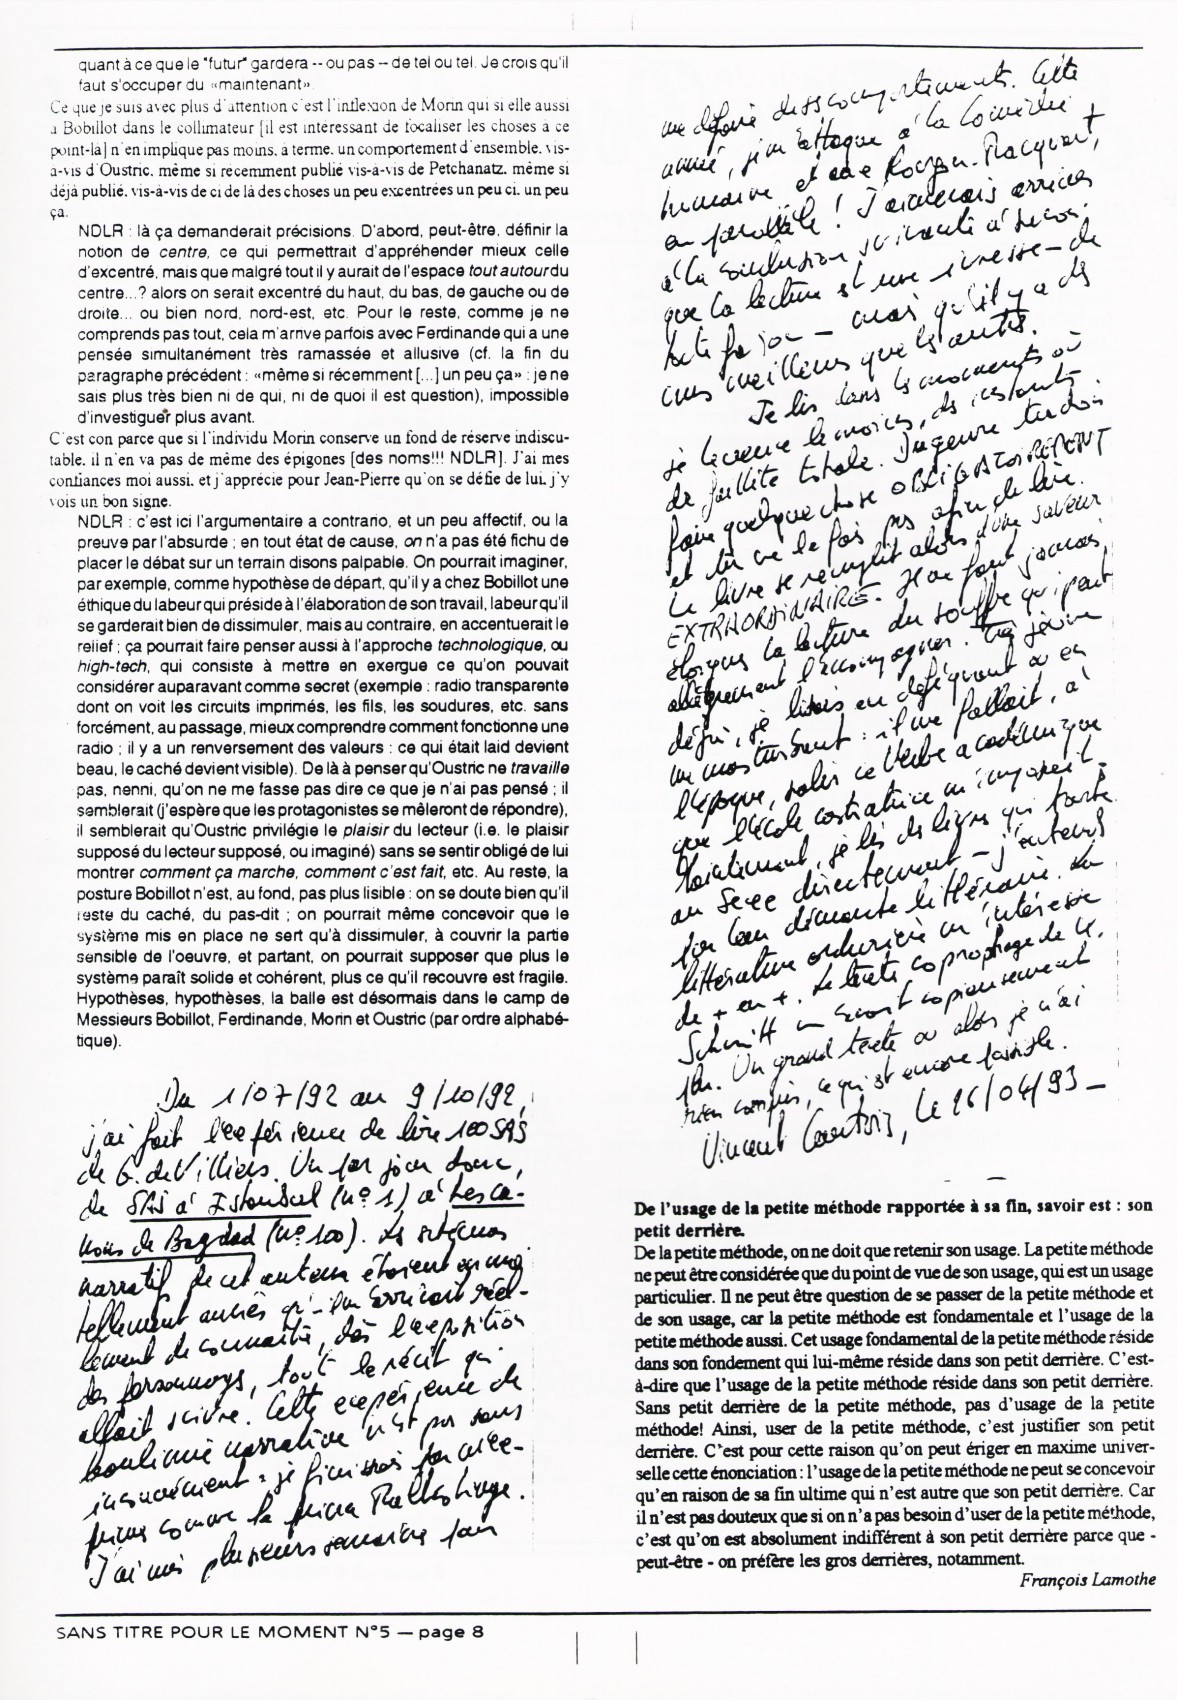 quant à ce que le "futur" gardera -- ou pas -- de tel ou tel. Je crois qu'il
faut s'occuper du «maintenant»
Ce que je suis avec plus d'attention c'est l'inflexion de Morin qui si elle aussi
a Bobillot dans le collimateur [il est intéressant de focaliser les choses à ce
point-là] n'en implique pas moins, à terme, un comportement d'ensemble, vis-
à-vis d'Oustric, même si récemment publié vis-à-vis de Petchanatz, même si
déjà publié, vis-à-vis de ci de là des choses un peu excentrées un peu ci, un peu
ça.
NDLR : là ça demanderait précisions. D'abord, peut-être, définir la
notion de centre, ce qui permettrait d'appréhender mieux celle
d'excentré, mais que malgré tout il y aurait de l'espace tout autour du
centre...? alors on serait excentré du haut, du bas, de gauche ou de
droite... ou bien nord, nord-est, etc. Pour le reste, comme je ne
comprends pas tout, cela m'arrive parfois avec Ferdinande qui a une
pensée simultanément très ramassée et allusive (cf. la fin du
paragraphe précédent : «même si récemment [...] un peu ça» : je ne
sais plus très bien ni de qui, ni de quoi il est question), impossible
d'investiguer plus avant.
C'est con parce que si l'individu Morin conserve un fond de réserve indiscu-
table, il n'en va pas de même des épigones [des noms!!! NDLR]. J'ai mes
confiances moi aussi, et j'apprécie pour Jean-Pierre qu'on se défie de lui, j'y
vois un bon signe.
NDLR : c'est ici l'argumentaire a contrario, et un peu affectif, ou la
preuve par l'absurde ; en tout état de cause, on n'a pas été fichu de
placer le débat sur un terrain disons palpable. On pourrait imaginer,
par exemple, comme hypothèse de départ, qu'il y a chez Bobillot une
éthique du labeur qui préside à l'élaboration de son travail, labeur qu'il
se garderait bien de dissimuler, mais au contraire, en accentuerait le
relief ; ça pourrait faire penser aussi à l'approche technologique, ou
high-tech, qui consiste à mettre en exergue ce qu'on pouvait
considérer auparavant comme secret (exemple : radio transparente
dont on voit les circuits imprimés, les fils, les soudures, etc. sans
forcément, au passage, mieux comprendre comment fonctionne une
radio ; il y a un renversement des valeurs : ce qui était laid devient
beau, le caché devient visible). De là à penser qu'Oustric ne travaille
pas, nenni, qu'on ne me fasse pas dire ce que je n'ai pas pensé ; il
semblerait (j'espère que les protagonistes se mêleront de répondre),
il semblerait qu'Oustric privilégie le plaisir du lecteur (i.e. le plaisir
supposé du lecteur supposé, ou imaginé) sans se sentir obligé de lui
montrer comment ça marche, comment c'est fait, etc. Au reste, la
posture Bobillot n'est, au fond, pas plus lisible : on se doute bien qu'il
reste du caché, du pas-dit ; on pourrait même concevoir que le
système mis en place ne sert qu'à dissimuler, à couvrir la partie
sensible de l'oeuvre, et partant, on pourrait supposer que plus le
système paraît solide et cohérent, plus ce qu'il recouvre est fragile.
Hypothèses, hypothèses, la balle est désormais dans le camp de
Messieurs Bobillot, Ferdinande, Morin et Oustric (par ordre alphabé-
tique).
Du 1/07/92 au 9/10/92,
j'ai fait l'expérience de lire 100 SAS
de G. de Villiers. Un par jour donc,
de SAS à Istanbul (n° 1) à Les ca-
nons de Bagdad (n° 100). Les schémas
narratifs de cet auteur étaient en moi
tellement ancrés qu'il me suffisait réel-
lement de connaître, dès l'exposition
des personnages, tout le récit qui
allait suivre. Cette expérience de
boulimie narrative n'est pas sans
inconvénient : je finissais par m'ex-
primer comme le prince Malko Linge.
J'ai mis plusieurs semaines pour
me défaire de ses comportements. Cette
année, je m'attaque à la Comédie
humaine et aux Rougon-Macquart,
en parallèle ! J'aimerais arriver
à la conclusion suivante à savoir
que la lecture est une ivresse — de
toute façon — mais qu'il y a des
crus meilleurs que les autres.
Je lis dans les moments où
je le veux le moins, des instants
de faillite totale. Imagine tu dois
faire quelque chose OBLIGATOIREMENT
et tu ne le fais pas afin de lire.
Le livre se remplit alors d'une saveur
EXTRAORDINAIRE. Il ne faut jamais
éloigner la lecture du souffle qui peut
allègrement l'accompagner. Très jeune
déjà, je lisais en déféquant ou en
me masturbant : il me fallait, à
l'époque, salir ce Verbe académique
que l'école castratrice m'imposait.
Maintenant, je lis des livres qui parlent
au sexe directement — j'entends
par leur démarche littéraire. La
littérature ordurière m'intéresse
de + en +. Le texte coprophage de K.
Schmitt m'avait copieusement
plu. Un grand texte ou alors je n'ai
rien compris, ce qui est encore possible.
Vincent Courtois, le 26/04/93 —
De l'usage de la petite méthode rapportée à sa fin, savoir est : son
petit derrière.
De la petite méthode, on ne doit que retenir son usage. La petite méthode
ne peut être considérée que du point de vue de son usage, qui est un usage
particulier. Il ne peut être question de se passer de la petite méthode et
de son usage, car la petite méthode est fondamentale et l'usage de la
petite méthode aussi. Cet usage fondamental de la petite méthode réside
dans son fondement qui lui-même réside dans son petit derrière. C'est-
à-dire que l'usage de la petite méthode réside dans son petit derrière.
Sans petit derrière de la petite méthode, pas d'usage de la petite
méthode! Ainsi, user de la petite méthode, c'est justifier son petit
derrière. C'est pour cette raison qu'on peut ériger en maxime univer-
selle cette énonciation : l'usage de la petite méthode ne peut se concevoir
qu'en raison de sa fin ultime qui n'est autre que son petit derrière. Car
il n'est pas douteux que si on n'a pas besoin d'user de la petite méthode,
c'est qu'on est absolument indifférent à son petit derrière parce que -
peut-être - on préfère les gros derrières, notamment.
François Lamothe
SANS TITRE POUR LE MOMENT N°5 — page 8